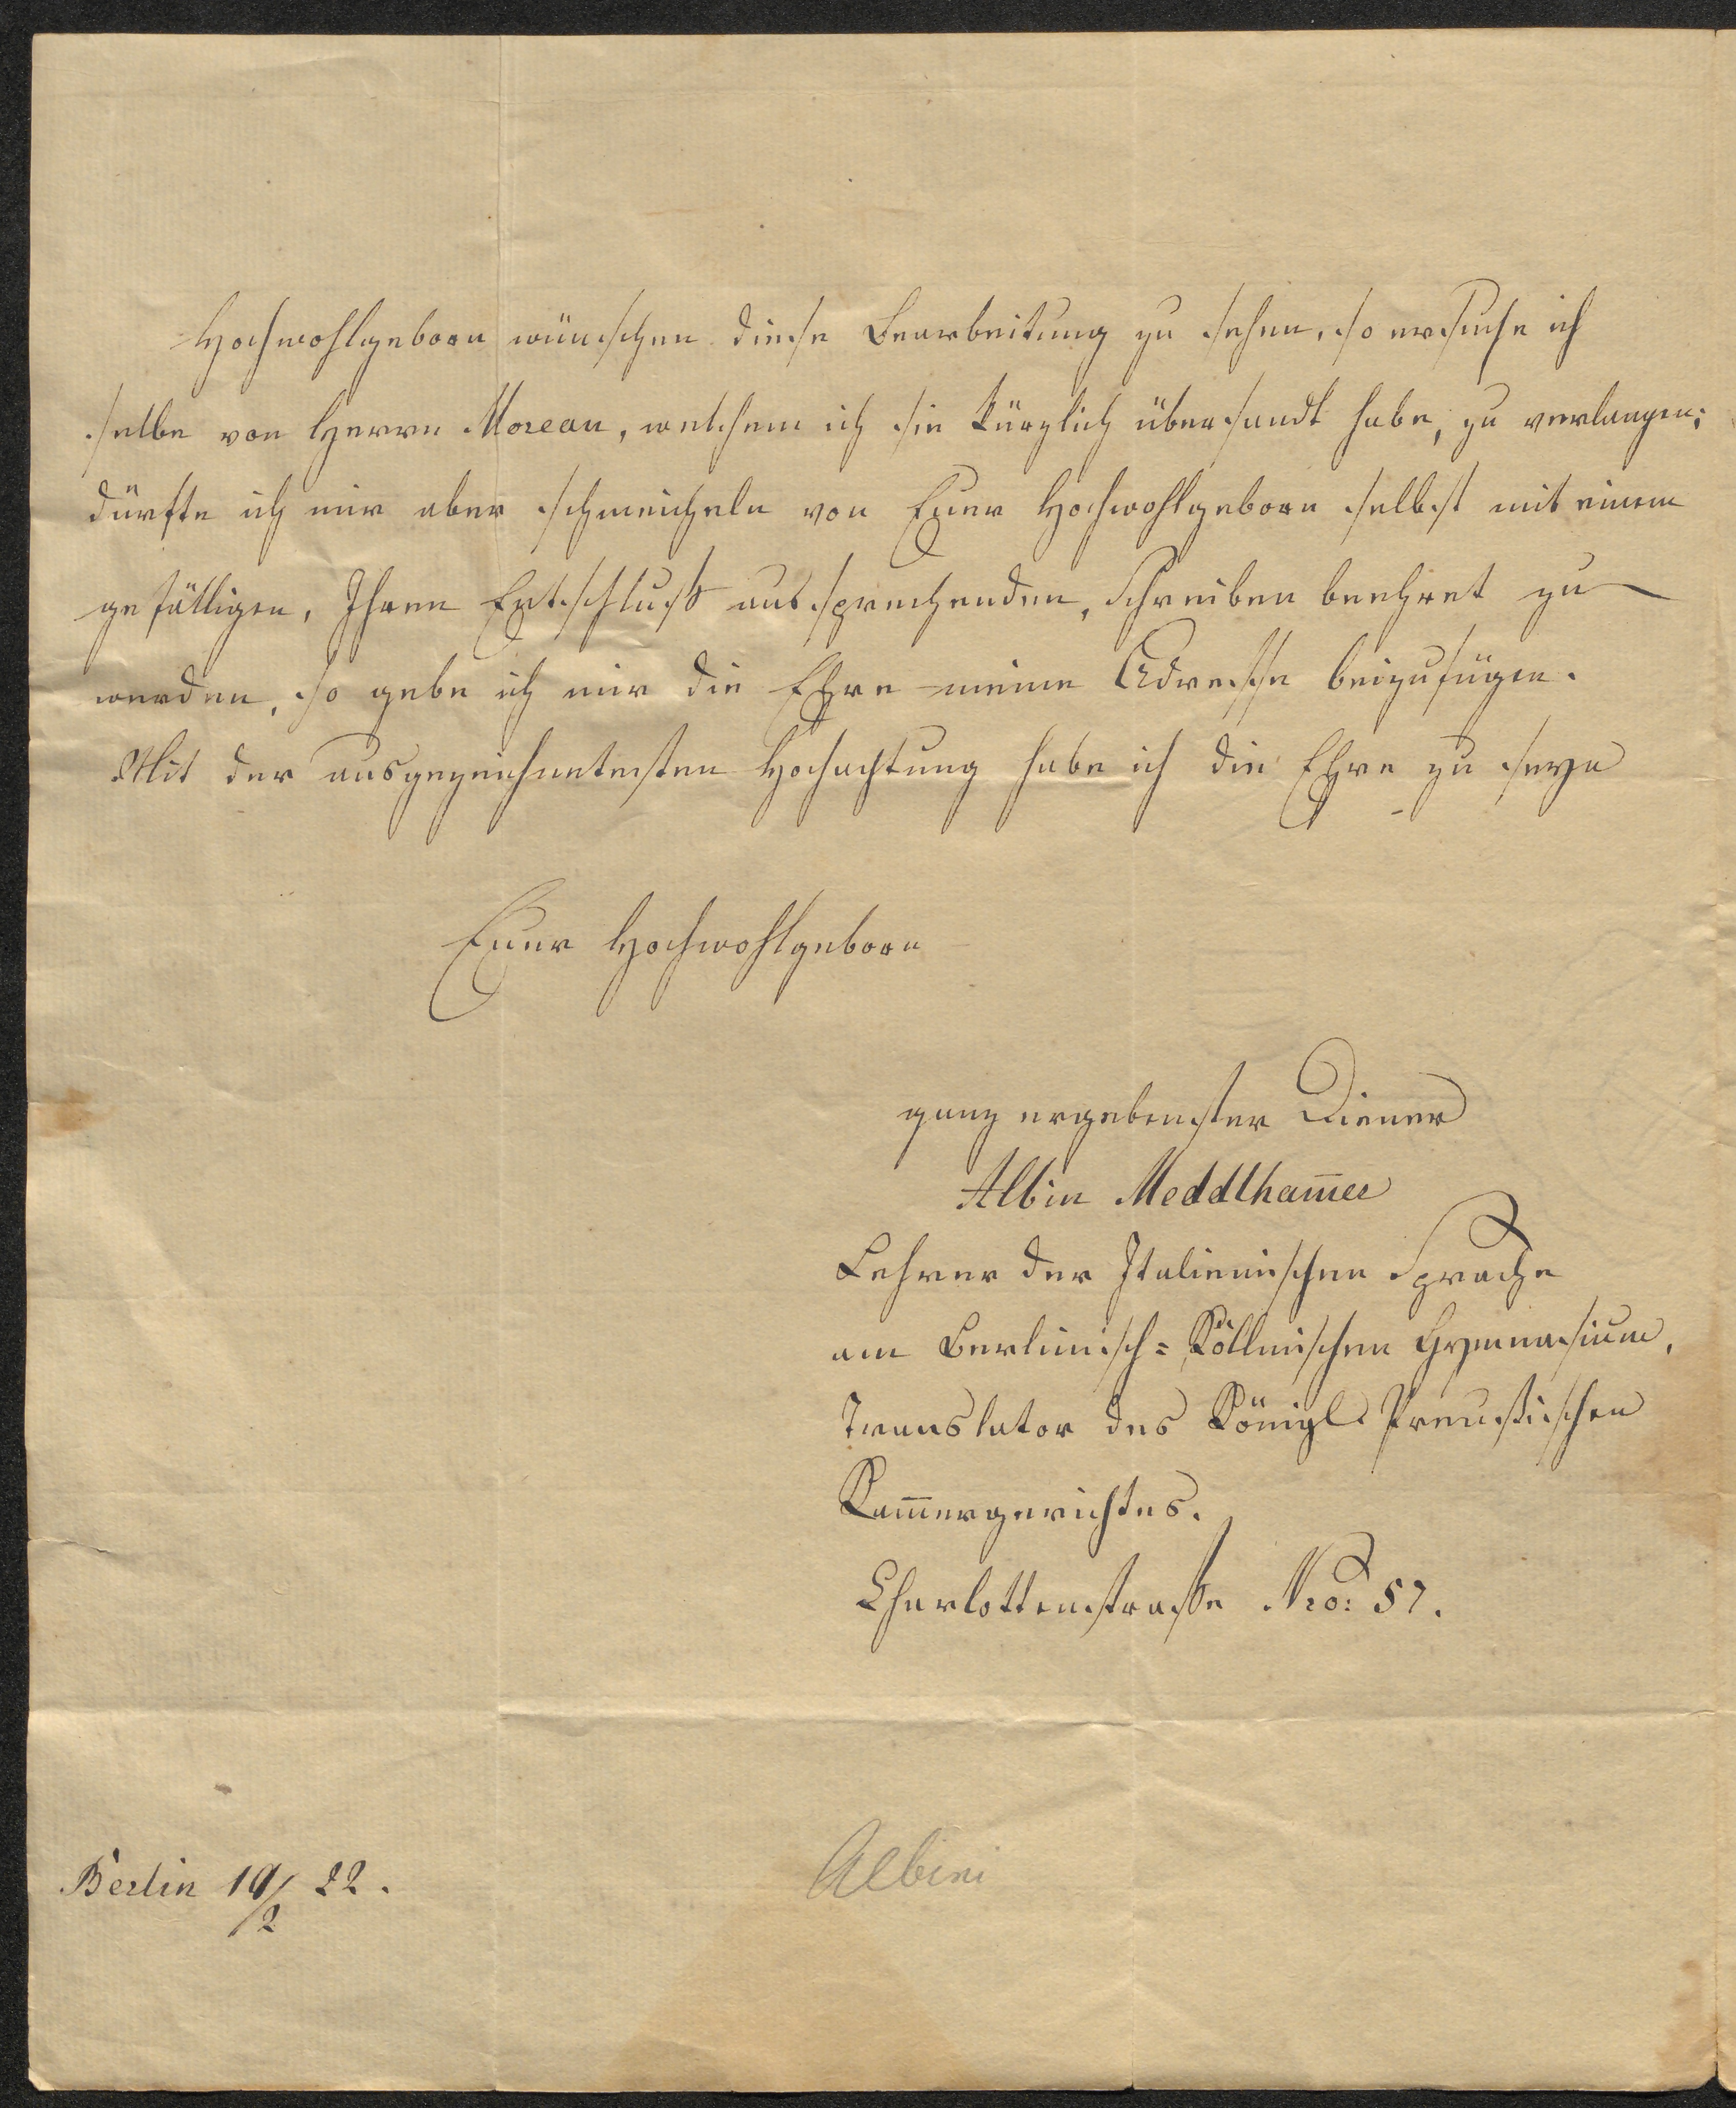 Hochwohlgeborn wünschen diese Bearbeitung zu sehen, so ersuche ich
selbe von Herrn Moreau, welchem ich sie kürzlich übersandt habe, zu verlangen;
dürfte ich mir aber schmeicheln von Euer Hochwohlgeborn selbst mit einem
gefälligen, Ihren Entschluß aussprechenden, Schreiben beehret zu
werden, so gebe ich mir die Ehre meine Adresse beizufügen.
Mit der ausgezeichnetesten Hochachtung habe ich die Ehre zu seyn
Euer Hochwohlgeborn
ganz ergebenster Diener
Albin Meddlham̅er
Lehrer der Italienischen Sprache
am Berlinisch=Köllnischen Gymnasium,
Translator des Königl. Preußischen
Kam̅ergerichtes.
Charlottenstraße Nro: 57.
Berlin 19/2 22.
Albini